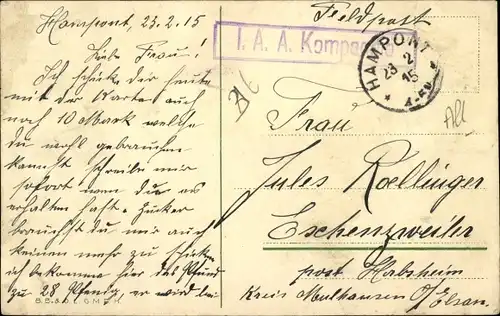 Hampont, 23.2.15
Liebe Frau!
Ich schicke dir heute
mit der Karte auch
noch 10 Mark welche
du wohl gebrauchen
kannst schreibe mir
sofort wen du es
erhalten hast. Zucker
brauchst du mir auch
keinen mehr zu schicken
ich bekomme hier das Pfund
zu 28 Pfenig er wird
B.B.&O.L.G.M.B.H.
Feldpost
I. A. A. Kompa
HAMPONT
23 2 15
Frau
Jules Rollinger
Eschenzweiler
post Habsheim
Kreis Mulhausen O/Elsas.